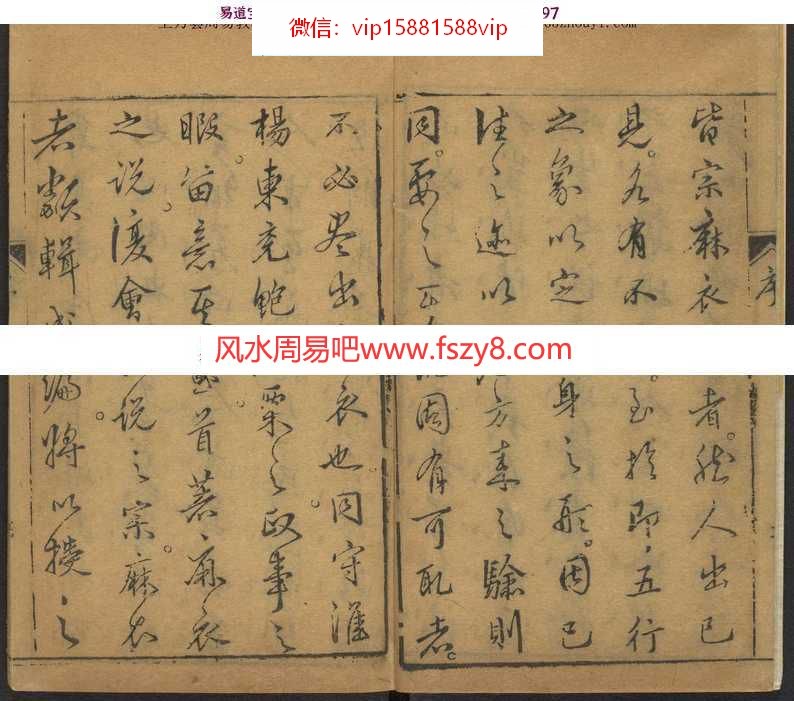 易道
97
微信：vip15881588vip
皆宗麻衣者。然人出己
見。各有不。至於即五行
之象以定身之形。因已
往之迹以方來之驗則
同。要之固有可取者。
不必盡出衣也。同守淮
楊東兗鮑栗之政事之
暇。留意首著麻衣
之說。復會說之宗。麻衣
者類輯成編。將以授之
序
风水周易吧www.fszy8.com